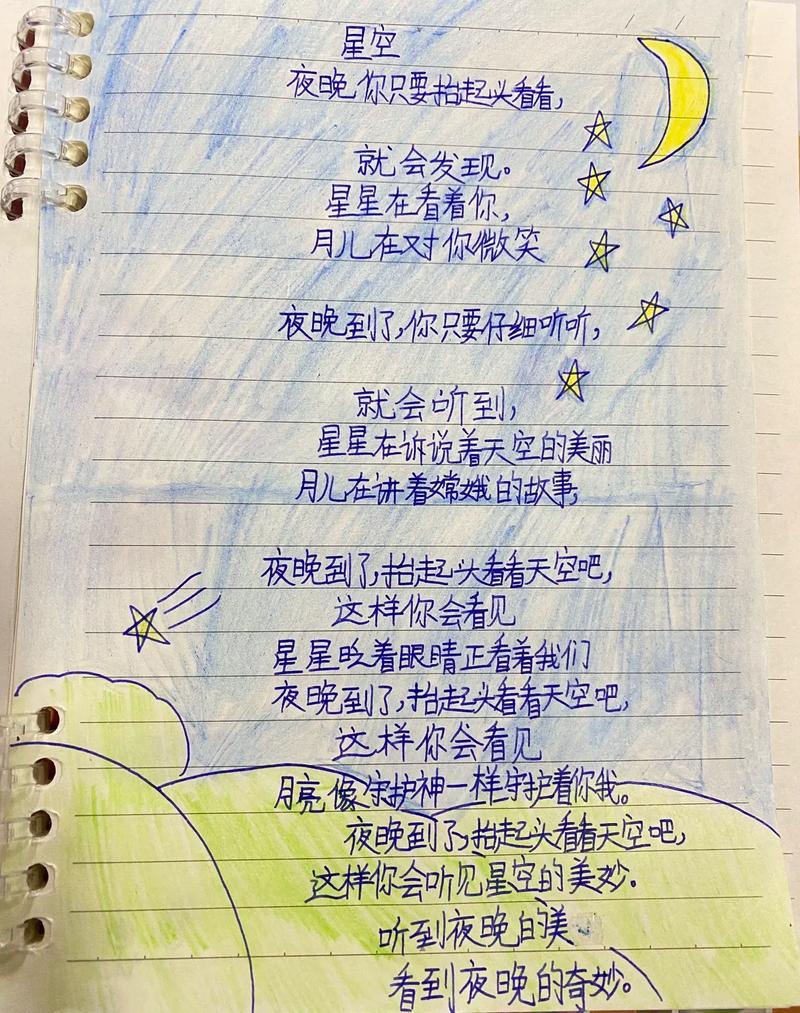 星空
夜晚你只要抬起头看看，
就会发现。
星星在看着你，
月儿在对你微笑
夜晚到了，你只要仔细听听，
就会听到，
星星在诉说着天空的美丽
月儿在讲着嫦娥的故事
夜晚到了，抬起头看看天空吧，
这样你会看见
星星眨着眼睛正看着我们
夜晚到了，抬起头看看天空吧，
这样你会看见
月亮像守护神一样守护着你我。
夜晚到了，抬起头看看天空吧，
这样你会听见星空的美妙。
听到夜晚的美
看到夜晚的奇妙。